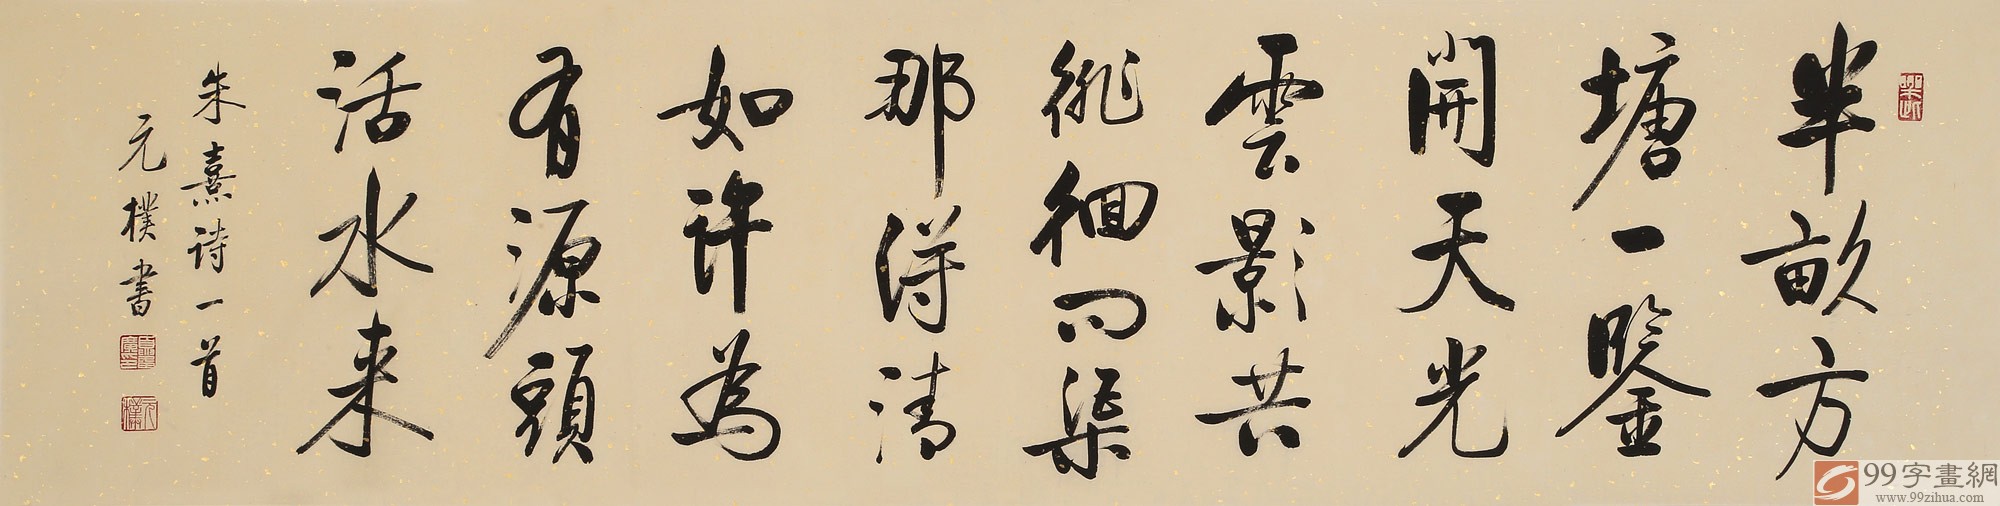 半畝方
塘一鑒
開天光
雲影共
徘徊问渠
那得清
如许為
有源頭
活水来
朱熹诗一首
元樸书
99字畫網
www.99zihua.com